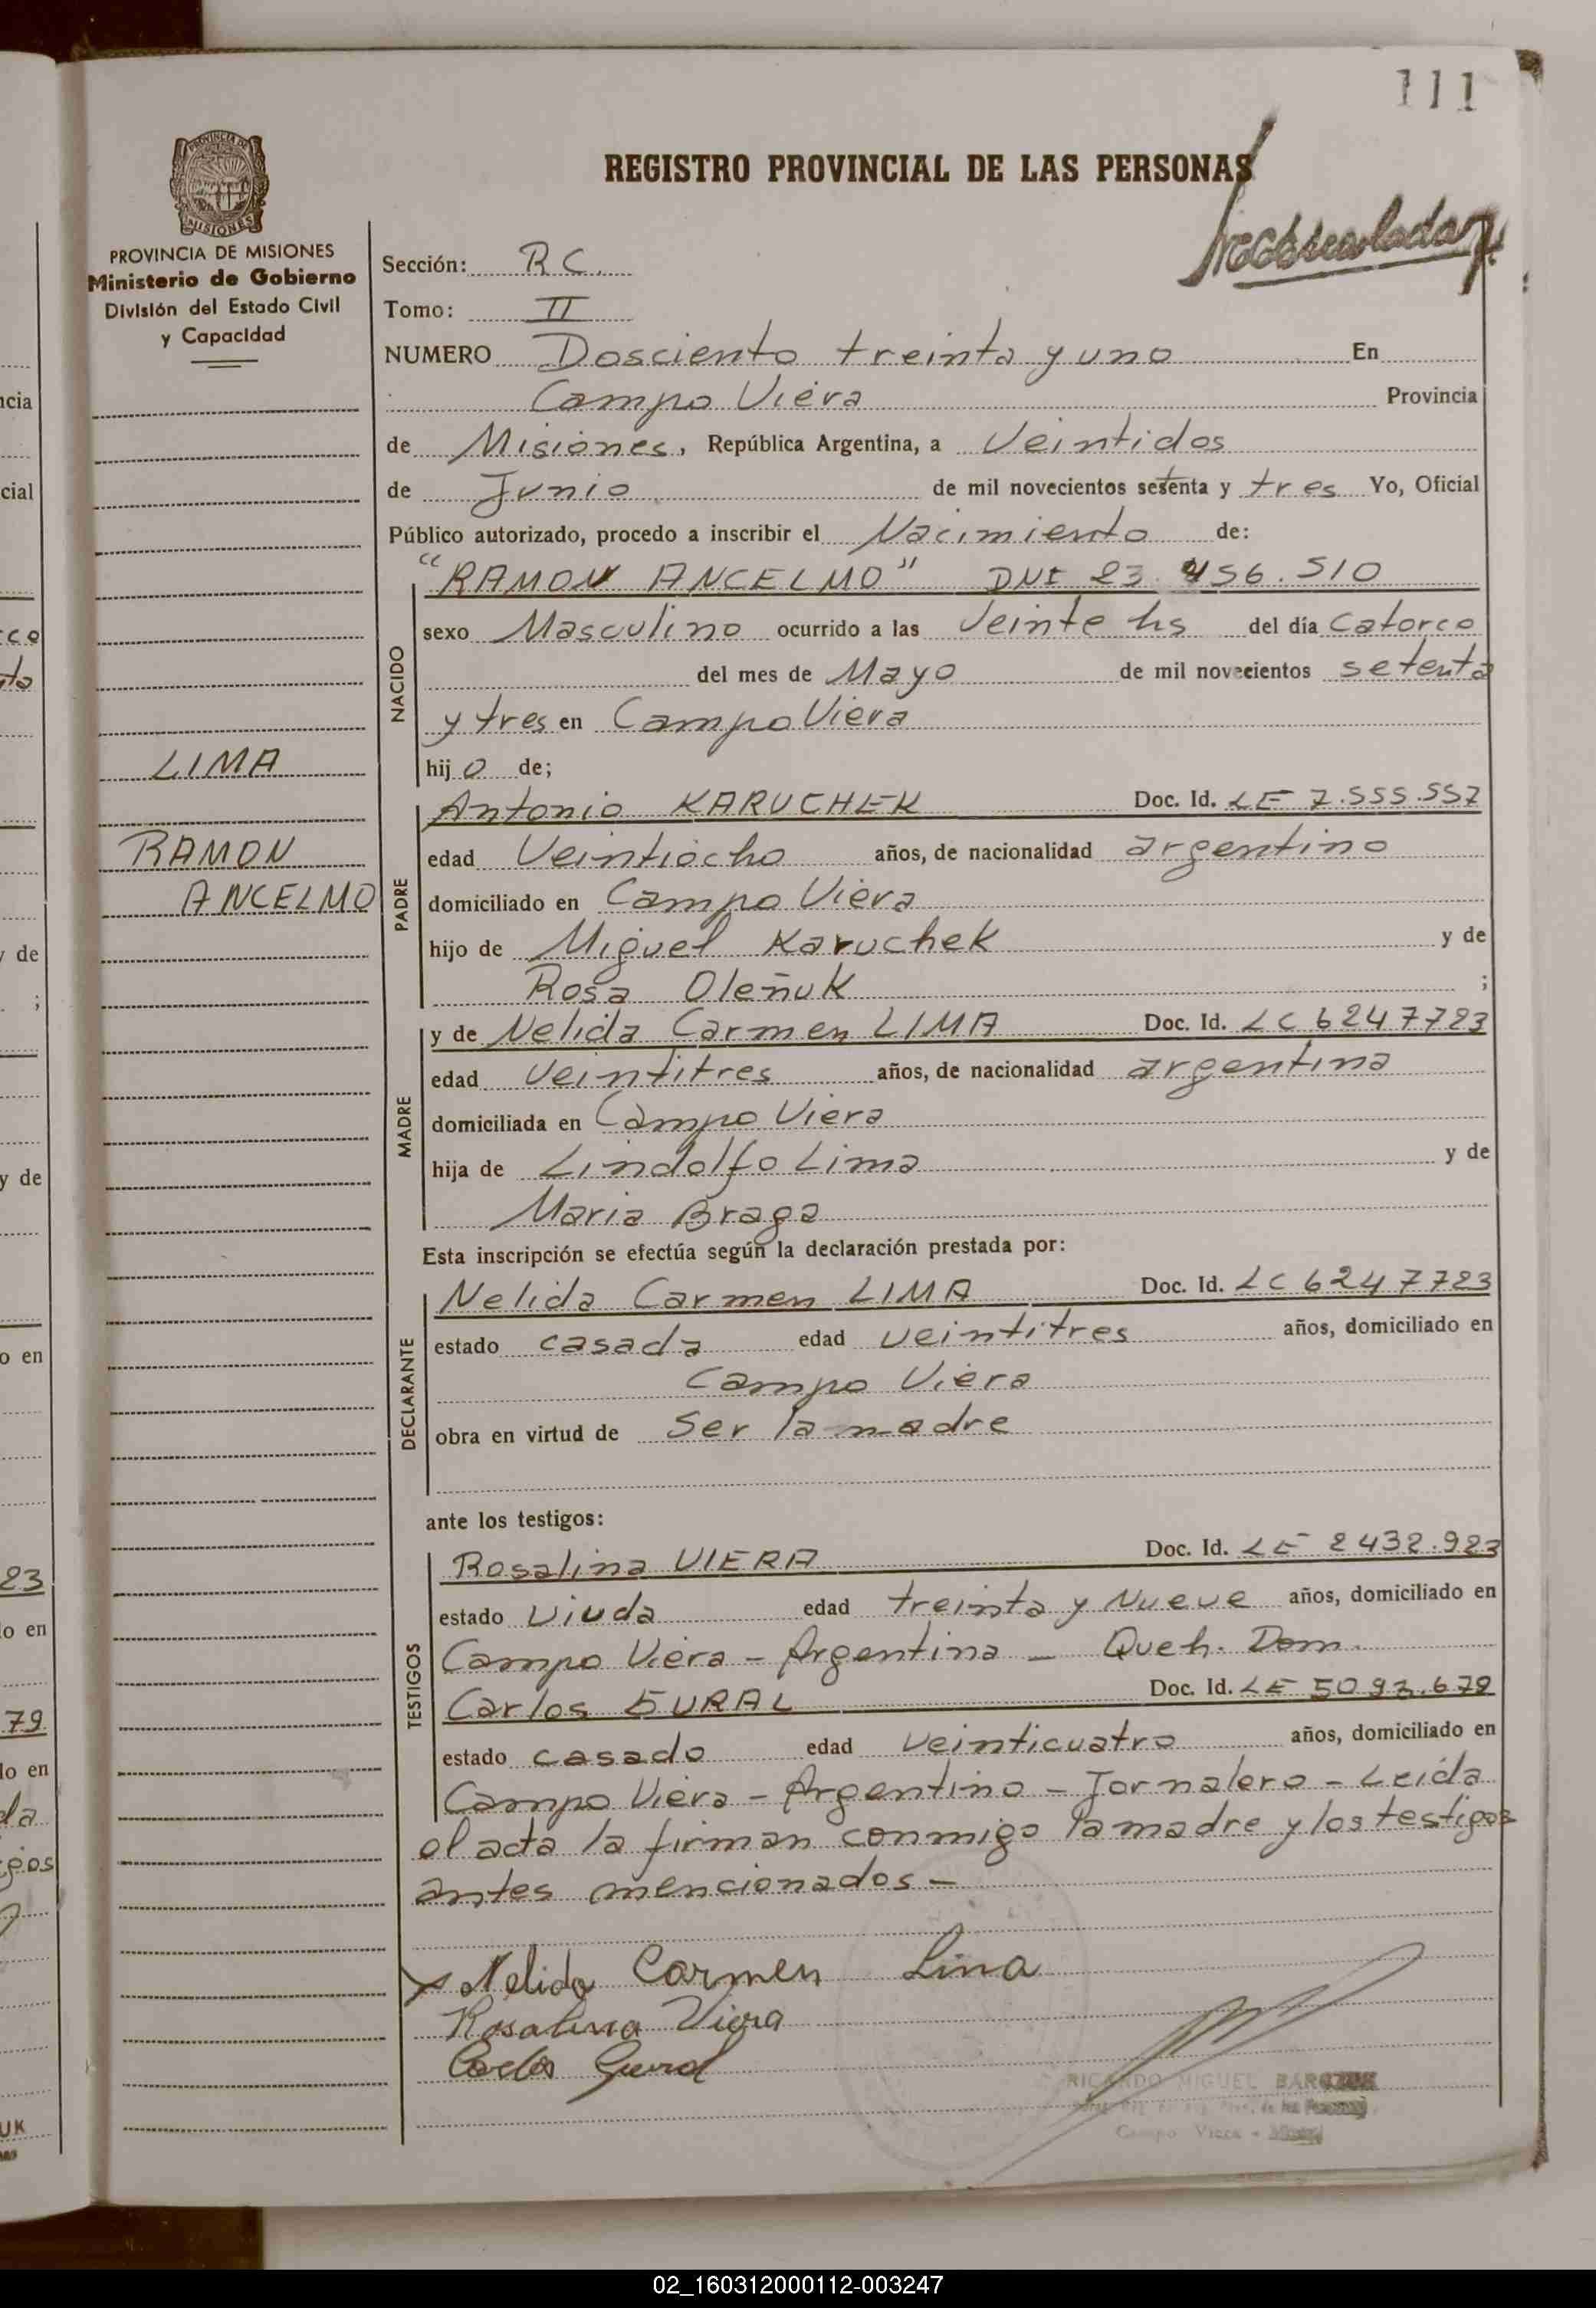 111
REGISTRO PROVINCIAL DE LAS PERSONAS
PROVINCIA DE
MISIONES
PROVINCIA DE MISIONES
Ministerio de Gobierno
División del Estado Civil
y Capacidad
Sección: R C.
Tomo: II
NUMERO Dosciento treinta y uno En
Campo Viera Provincia
de Misiones, República Argentina, a Veintidos
de Junio de mil novecientos setenta y tres Yo, Oficial
Público autorizado, procedo a inscribir el Nacimiento de:
NACIDO
"RAMON ANCELMO" DNI 23.456.510
sexo Masculino ocurrido a las Veinte hs del día Catorce
del mes de Mayo de mil novecientos setenta
y tres en Campo Viera
hijo de;
LIMA
RAMON
ANCELMO
PADRE
Antonio KARUCHEK Doc. Id. LE 7.555.557
edad Veintiocho años, de nacionalidad argentino
domiciliado en Campo Viera
hijo de Miguel Karuchek y de
Rosa Oleñuk ;
MADRE
y de Nelida Carmen LIMA Doc. Id. LC 6247723
edad Veintitres años, de nacionalidad argentina
domiciliada en Campo Viera
hija de Lindolfo Lima y de
Maria Braga
Esta inscripción se efectúa según la declaración prestada por:
DECLARANTE
Nelida Carmen LIMA Doc. Id. LC 6247723
estado casada edad veintitres años, domiciliado en
Campo Viera
obra en virtud de Ser la madre
ante los testigos:
TESTIGOS
Rosalina VIERA Doc. Id. LE 2432.923
estado Viuda edad treinta y Nueve años, domiciliado en
Campo Viera - Argentina - Queh. Dom.
Carlos SURAL Doc. Id. LE 5093.679
estado casado edad veinticuatro años, domiciliado en
Campo Viera - Argentino - Jornalero - Leida
el acta la firman conmigo la madre y los testigos
antes mencionados -
Nelida Carmen Lima
Rosalina Viera
Carlos
RICARDO MIGUEL
Campo Viera -
02_160312000112-003247